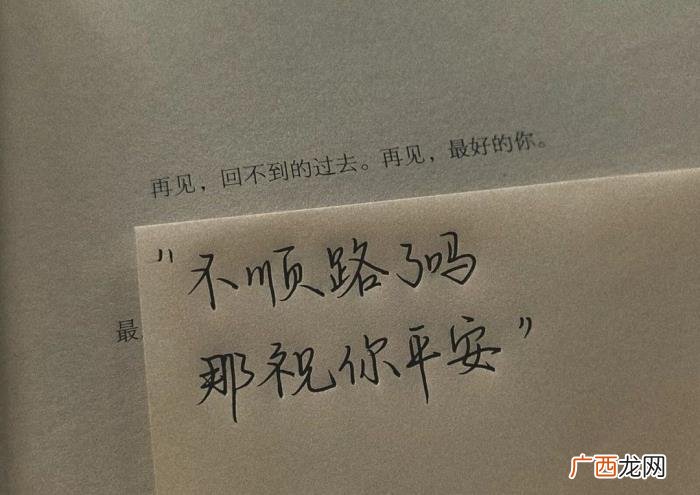 再见，回不到的过去。再见，最好的你。
"不顺路了吗
最
那祝你平安"
广西龙网